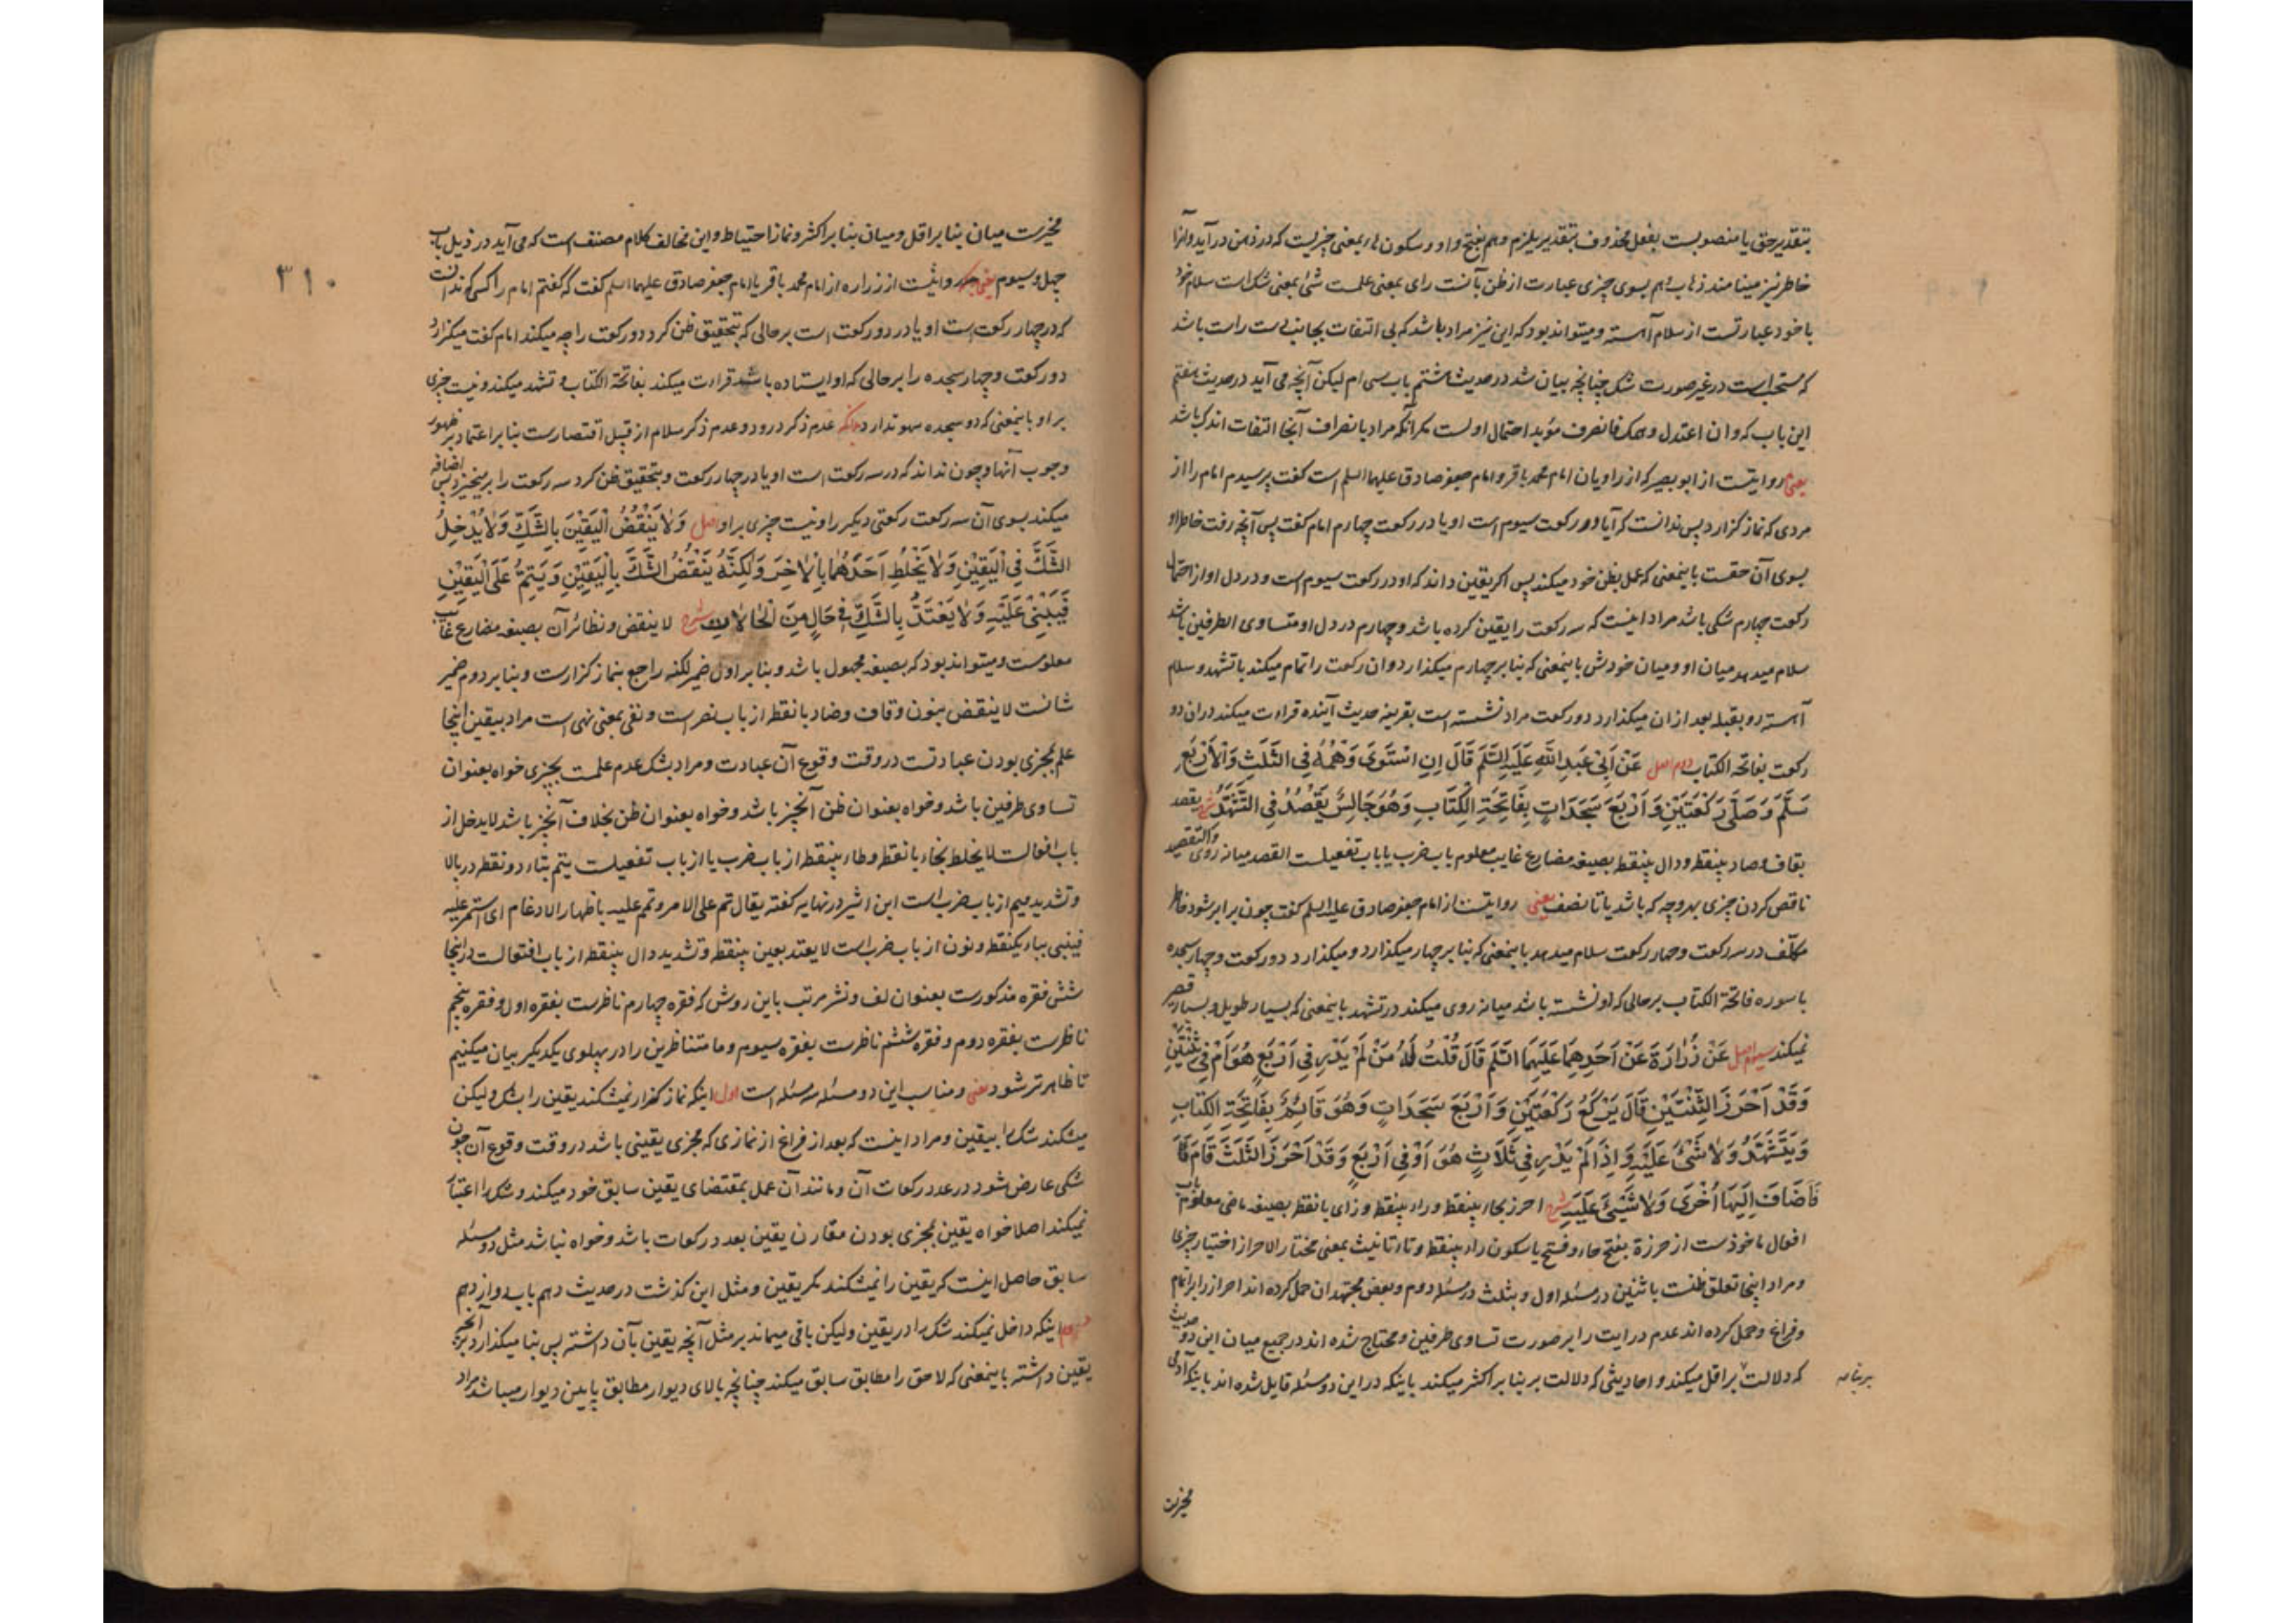 بتقدیر حق یا منصوبست بفعل محذوف بتقدیر یلزم وهم بفتح واو و سکون هاء بمعنی چیزیست که در ذهن در آید و آنرا
خاطر نیز مینامند ذهاب وهم بسوی چیزی عبارت از ظن بآنست رای بمعنی علمست شئ بمعنی شک است سلام خود
با خود عبارتست از سلام آهسته و میتواند بود که این نیز مراد باشد که بی التفات بجانب دست راست باشد
که مستحب است در غیر صورت شک چنانچه بیان شد در حدیث هشتم باب سی ام لیکن آنچه می آید در حدیث هفتم
این باب که و ان اعتدل وهمک فانصرف مؤید احتمال اولست مگر آنکه مراد بانصراف آنجا التفات اندک باشد
یعنی روایتست از ابو بصیر که از راویان امام محمد باقر و امام جعفر صادق علیهما السلم است گفت پرسیدم امام را از
مردی که نماز گزارد پس ندانست که آیا در رکعت سیوم است او یا در رکعت چهارم امام گفت پس آنچه رفت خاطر او
بسوی آن حقست باینمعنی که عمل بظن خود میکند پس اگر یقین داند که او در رکعت سیوم است و در دل او از احتمال
رکعت چهارم شکی باشد مراد اینست که سه رکعت را یقین کرده باشد و چهارم در دل او متساوی الطرفین باشد
سلام میدهد میان او و میان خودش باینمعنی که بنا بر چهارم میگذارد و ان رکعت را تمام میکند با تشهد و سلام
آهسته رو بقبله بعد از ان میگذارد دو رکعت مراد نشسته است بقرینه حدیث آینده قراءت میکند در ان دو
رکعت بفاتحة الکتاب دوم اصل عَنْ اَبِیْ عَبدِ اللّهِ عَلَیهِ السَّلَم قَالَ اِنِ اسْتَوَیٰ وَهْمُهُ فِی الثَّلَثِ وَالْاَرْبَعِ
سَلَّمَ وَصَلَّی رَکْعَتَیْنِ وَ اَرْبَعَ سَجَدَاتٍ بِفَاتِحَةِ الْکِتَابِ وَهُوَ جَالِسٌ یَقْصُدُ فِی التَّشَهُّدِ شرح یقصد
بقاف و صاد بینقطه و دال بینقطه بصیغه مضارع غایب معلوم باب ضرب یا باب تفعیلست القصد میانه روی والتقصید
ناقص کردن چیزی بهر وجه که باشد یا تا نصف یعنی روایتست از امام جعفر صادق علیه السلم گفت چون برابر شود خاطر
مکلّف در سه رکعت و چهار رکعت سلام میدهد باینمعنی که بنا بر چهار میگذارد و میگذارد دو رکعت و چهار سجده
با سوره فاتحة الکتاب بر حالی که او نشسته باشد میانه روی میکند در تشهد باینمعنی که بسیار طویل و بسیار قصیر
نمیکند سیوم اصل عَنْ زُرَارَةَ عَنْ اَحَدِهِمَا عَلَیهِمَا السَّلَم قَالَ قُلْتُ لَهُ مَنْ لَمْ یَدْرِ فِی اَرْبَعٍ هُوَ اَمْ فِیْ ثِنْتَیْنِ
وَقَدْ اَحْرَزَ الثِّنْتَیْنِ قَالَ یَرْکَعُ رَکْعَتَیْنِ وَ اَرْبَعَ سَجَدَاتٍ وَهُوَ قَائِمٌ بِفَاتِحَةِ الْکِتَابِ
وَیَتَشَهَّدُ وَلَا شَیْئَ عَلَیْهِ وَ اِذَا لَمْ یَدْرِ فِی ثَلَاثٍ هُوَ اَوْ فِی اَرْبَعٍ وَ قَدْ اَحْرَزَ الثَّلَثَ قَامَ
فَاَضَافَ اِلَیْهَا اُخْرَیٰ وَلَا شَیْئَ عَلَیْهِ شرح احرز بحاء بینقطه و راء بینقطه و زای با نقطه بصیغه ماضی معلوم باب
افعال ماخوذست از حرزة بفتح حاء و فتح یا سکون راء بینقطه و تاء تانیث بمعنی مختار الاحراز اختیار چیزی
و مراد اینجا تعلق ظنست باثنین در مسئله اول و بثلث در مسئله دوم و بعض مجتهدان حمل کرده اند احراز را بر اتمام
و فراغ و حمل کرده اند عدم درایت را بر صورت تساوی طرفین و محتاج شده اند در جمع میان این دو حدیث
که دلالت بر اقل میکند و احادیثی که دلالت بر بنا بر اکثر میکند باینکه در این دو مسئله قایل شده اند باینکه آدمی
بر بنا
مخیرست
مخیرست میان بنا بر اقل و میان بنا بر اکثر و نماز احتیاط و این مخالف کلام مصنف است که می آید در ذیل باب
۳۱۰
چهل و سیوم یعنی روایتست از زراره از امام محمد باقر یا امام جعفر صادق علیهما السلم گفت که گفتم امام را کسی که ندانست
که در چهار رکعت است او یا در دو رکعت است بر حالی که بتحقیق ظن کرد دو رکعت را چه میکند امام گفت میگزارد
دو رکعت و چهار سجده را بر حالی که او ایستاده باشد قراءت میکند بفاتحة الکتاب و تشهد میکند و نیست چیزی
بر او باینمعنی که دو سجده سهو ندارد بدانکه عدم ذکر درود و عدم ذکر سلام از قبیل اقتصارست بنا بر اعتماد بر ظهور
وجوب آنها و چون نداند که در سه رکعت است او یا در چهار رکعت و بتحقیق ظن کرد سه رکعت را بر میخیزد پس اضافه
میکند بسوی آن سه رکعت رکعتی دیگر را و نیست چیزی بر او اصل وَلَا یَنْقُضُ الْیَقِیْنَ بِالشَّکِّ وَلَا یُدْخِلُ
الشَّکَّ فِی الْیَقِیْنِ وَلَا یَخْلِطُ اَحَدَهُمَا بِالْاٰخِرِ وَلٰکِنَّهُ یَنْقُضُ الشَّکَّ بِالْیَقِیْنِ وَیَتِمُّ عَلَی الْیَقِیْنِ
فَیَبْنِیْ عَلَیْهِ وَلَا یَعْتَدُّ بِالشَّکِّ فِیْ حَالٍ مِنَ الْحَالَاتِ شرح لا ینقض و نظائر آن بصیغه مضارع غایب
معلومست و میتواند بود که بصیغه مجهول باشد و بنا بر اول ضمیر لکنه راجع بنماز گزارست و بنا بر دوم ضمیر
شانست لا ینقض بنون و قاف و ضاد با نقطه از باب نصر است و نفی بمعنی نهی است مراد بیقین اینجا
علم بمجزی بودن عبادتست در وقت وقوع آن عبادت و مراد بشک عدم علمست بچیزی خواه بعنوان
تساوی طرفین باشد و خواه بعنوان ظن آنچیز باشد و خواه بعنوان ظن بخلاف آنچیز باشد لا یدخل از
باب افعالست لا یخلط بخاء با نقطه و طاء بینقطه از باب ضرب یا از باب تفعیلست یتم بتاء دو نقطه در بالا
و تشدید میم از باب ضرب است ابن اثیر در نهایه گفته یقال تم علی الامر و تمم علیه باظهار الادغام ای استمر علیه
فیبنی بباء یکنقطه و نون از باب ضرب است لا یعتد بعین بینقطه و تشدید دال بینقطه از باب افتعالست در اینجا
شش فقره مذکورست بعنوان لف و نشر مرتب باین روش که فقره چهارم ناظرست بفقره اول و فقره پنجم
ناظرست بفقره دوم و فقره ششم ناظرست بفقره سیوم و ما متناظرین را در پهلوی یکدیگر بیان میکنیم
تا ظاهرتر شود یعنی و مناسب این دو مسئله سه مسئله است اول اینکه نماز گزار نمیشکند یقین را بشک ولیکن
میشکند شک را بیقین و مراد اینست که بعد از فراغ از نمازی که مجزی یقینی باشد در وقت وقوع آن چون
شکی عارض شود در عدد رکعات آن و مانند آن عمل بمقتضای یقین سابق خود میکند و شک را اعتبار
نمیکند اصلا خواه یقین بمجزی بودن مقارن یقین بعدد رکعات باشد و خواه نباشد مثل دو مسئله
سابق حاصل اینست که یقین را نمیشکند مگر یقین و مثل این گذشت در حدیث دهم باب دوازدهم
دوم اینکه داخل نمیکند شک را در یقین ولیکن باقی میماند بر مثل آنچه یقین بآن داشته پس بنا میگذارد بر آنچه
یقین داشته باینمعنی که لاحق را مطابق سابق میکند چنانچه بالای دیوار مطابق پایین دیوار میباشد مراد